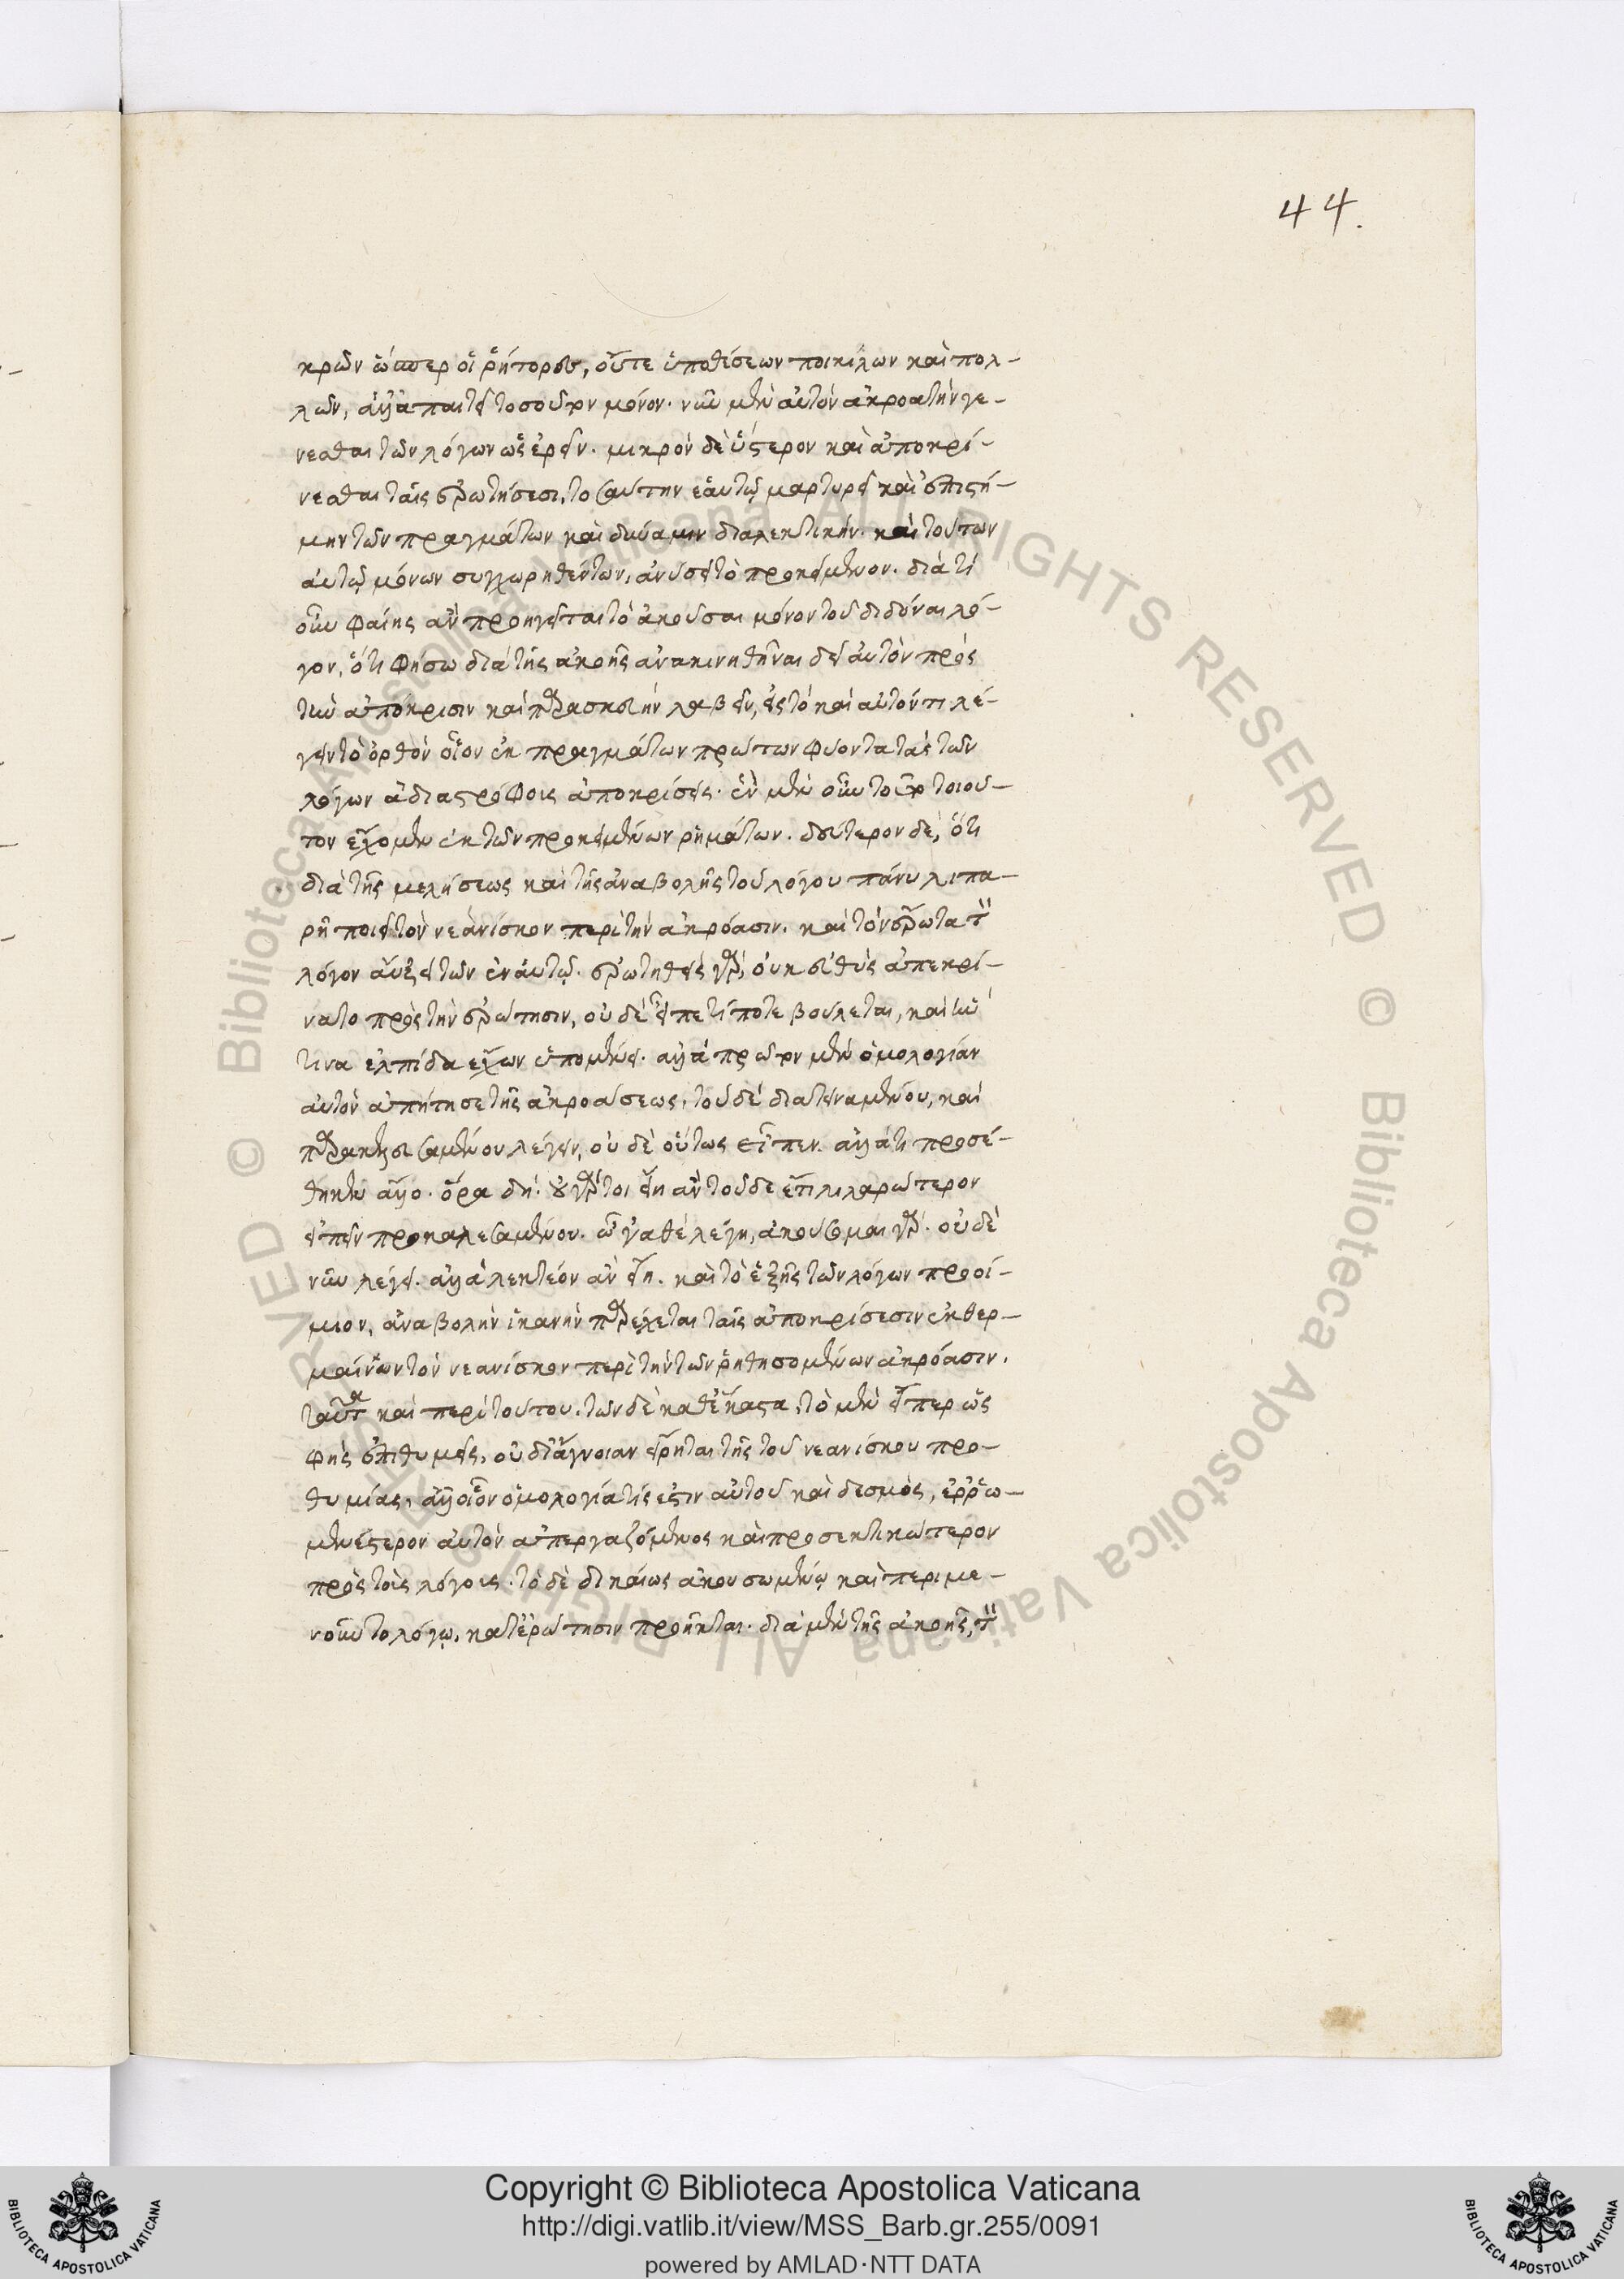 44.
κρῶν ὥσπερ οἱ ῥήτορες, οὔτε ὑποθέσεων ποικίλων καὶ πολ-
λῶν, ἀλλ' ἀπαιτεῖ τοσοῦτον μόνον. νῦν μὲν αὐτὸν ἀκροατὴν γε-
νέσθαι τῶν λόγων ὡς ἐρεῖν. μικρὸν δὲ ὕστερον καὶ ἀποκρί-
νεσθαι ταῖς ἐρωτήσεσι, τοσαύτην ἑαυτῷ μαρτυρεῖ καὶ ἐπιστή-
μην τῶν πραγμάτων καὶ δύναμιν διαλεκτικήν. καὶ τούτων
αὐτῷ μόνων συγχωρηθέντων, ἀνύσει τὸ προκείμενον. διὰ τί
οὖν φαίης ἂν προηγεῖται τὸ ἀκοῦσαι μόνον τοῦ διδόναι λό-
γον, ὅτι φήσω διὰ τῆς ἀκοῆς ἀνακινηθῆναι δεῖ αὐτὸν πρὸς
τὴν ἀπόκρισιν καὶ παρασκευὴν λαβεῖν, εἰς τὸ καὶ αὐτόν τι λέ-
γειν τὸ ὀρθὸν οἷον ἐκ πραγμάτων πρώτων φύοντα τὰς τῶν
λόγων ἀδιαστρόφοις ἀποκρίσεις. ἓν μὲν οὖν τοῦτο τοιοῦ-
τον εἴχομεν ἐκ τῶν προκειμένων ῥημάτων. δεύτερον δὲ, ὅτι
διὰ τῆς μελήσεως καὶ τῆς ἀναβολῆς τοῦ λόγου πάνυ λιπα-
ρῆ ποιεῖ τὸν νεανίσκον περὶ τὴν ἀκρόασιν. καὶ τὸν ἔρωτα τοῦ
λόγον αὔξει τῶν ἐν αὐτῷ. ἐρωτηθεὶς γὰρ, οὐκ εὐθὺς ἀπεκρί-
νατο πρὸς τὴν ἐρώτησιν, οὐδὲ εἶπε τί ποτε βούλεται, καὶ ἣν
τινα ἐλπίδα ἔχων ὑπομένει. ἀλλὰ πρῶτον μὲν ὁμολογίαν
αὐτὸν ἀπῄτησε τῆς ἀκροάσεως. τοῦ δὲ διατειναμένου, καὶ
παρακελευσαμένου λέγειν, οὐδὲ οὕτως εἶπεν. ἀλλά τι προσέ-
θηκεν ἄλλο. ὅρα δή. οὐ γάρ τοι εἴη ἂν τοῦδε ἔτι λιπαρώτερον
εἰπεῖν προκαλεσαμένου. ὦ 'γαθὲ λέγη, ἀκούσομαι γάρ. οὐδὲ
νῦν λέγει. ἀλλὰ λεκτέον ἂν εἴη. καὶ τὸ ἑξῆς τῶν λόγων προοί-
μιον, ἀναβολὴν ἱκανὴν παρέχεται ταῖς ἀποκρίσεσιν ἐκθερ-
μαίνων τὸν νεανίσκον περὶ τὴν τῶν ῥηθησομένων ἀκρόασιν.
ταῦτα καὶ περὶ τούτου. τῶν δὲ καθ' ἕκαστα, τὸ μὲν εἴπερ ὡς
φῂς ἐπιθυμεῖς, οὐ δι' ἄγνοιαν εἴρηται τῆς τοῦ νεανίσκου προ-
θυμίας, ἀλλ' οἷον ὁμολογία τίς ἐστιν αὐτοῦ καὶ δεσμὸς, ἐρρω-
μενέστερον αὐτὸν ἀπεργαζόμενος καὶ προσεκτικώτερον
πρὸς τοῖς λόγοις. τὸ δὲ δικαίως ἀκουσωμένῳ καὶ περιμε-
νοῦντο λόγῳ. κατ' ἐρώτησιν προῆκται. διὰ μὲν τῆς ἀκοῆς, τοῦ
Copyright © Biblioteca Apostolica Vaticana
http://digi.vatlib.it/view/MSS_Barb.gr.255/0091
powered by AMLAD·NTT DATA
BIBLIOTECA APOSTOLICA VATICANA
BIBLIOTECA APOSTOLICA VATICANA
© Biblioteca Apostolica Vaticana ALL RIGHTS RESERVED © Biblioteca Apostolica Vaticana ALL RIGHTS RESERVED